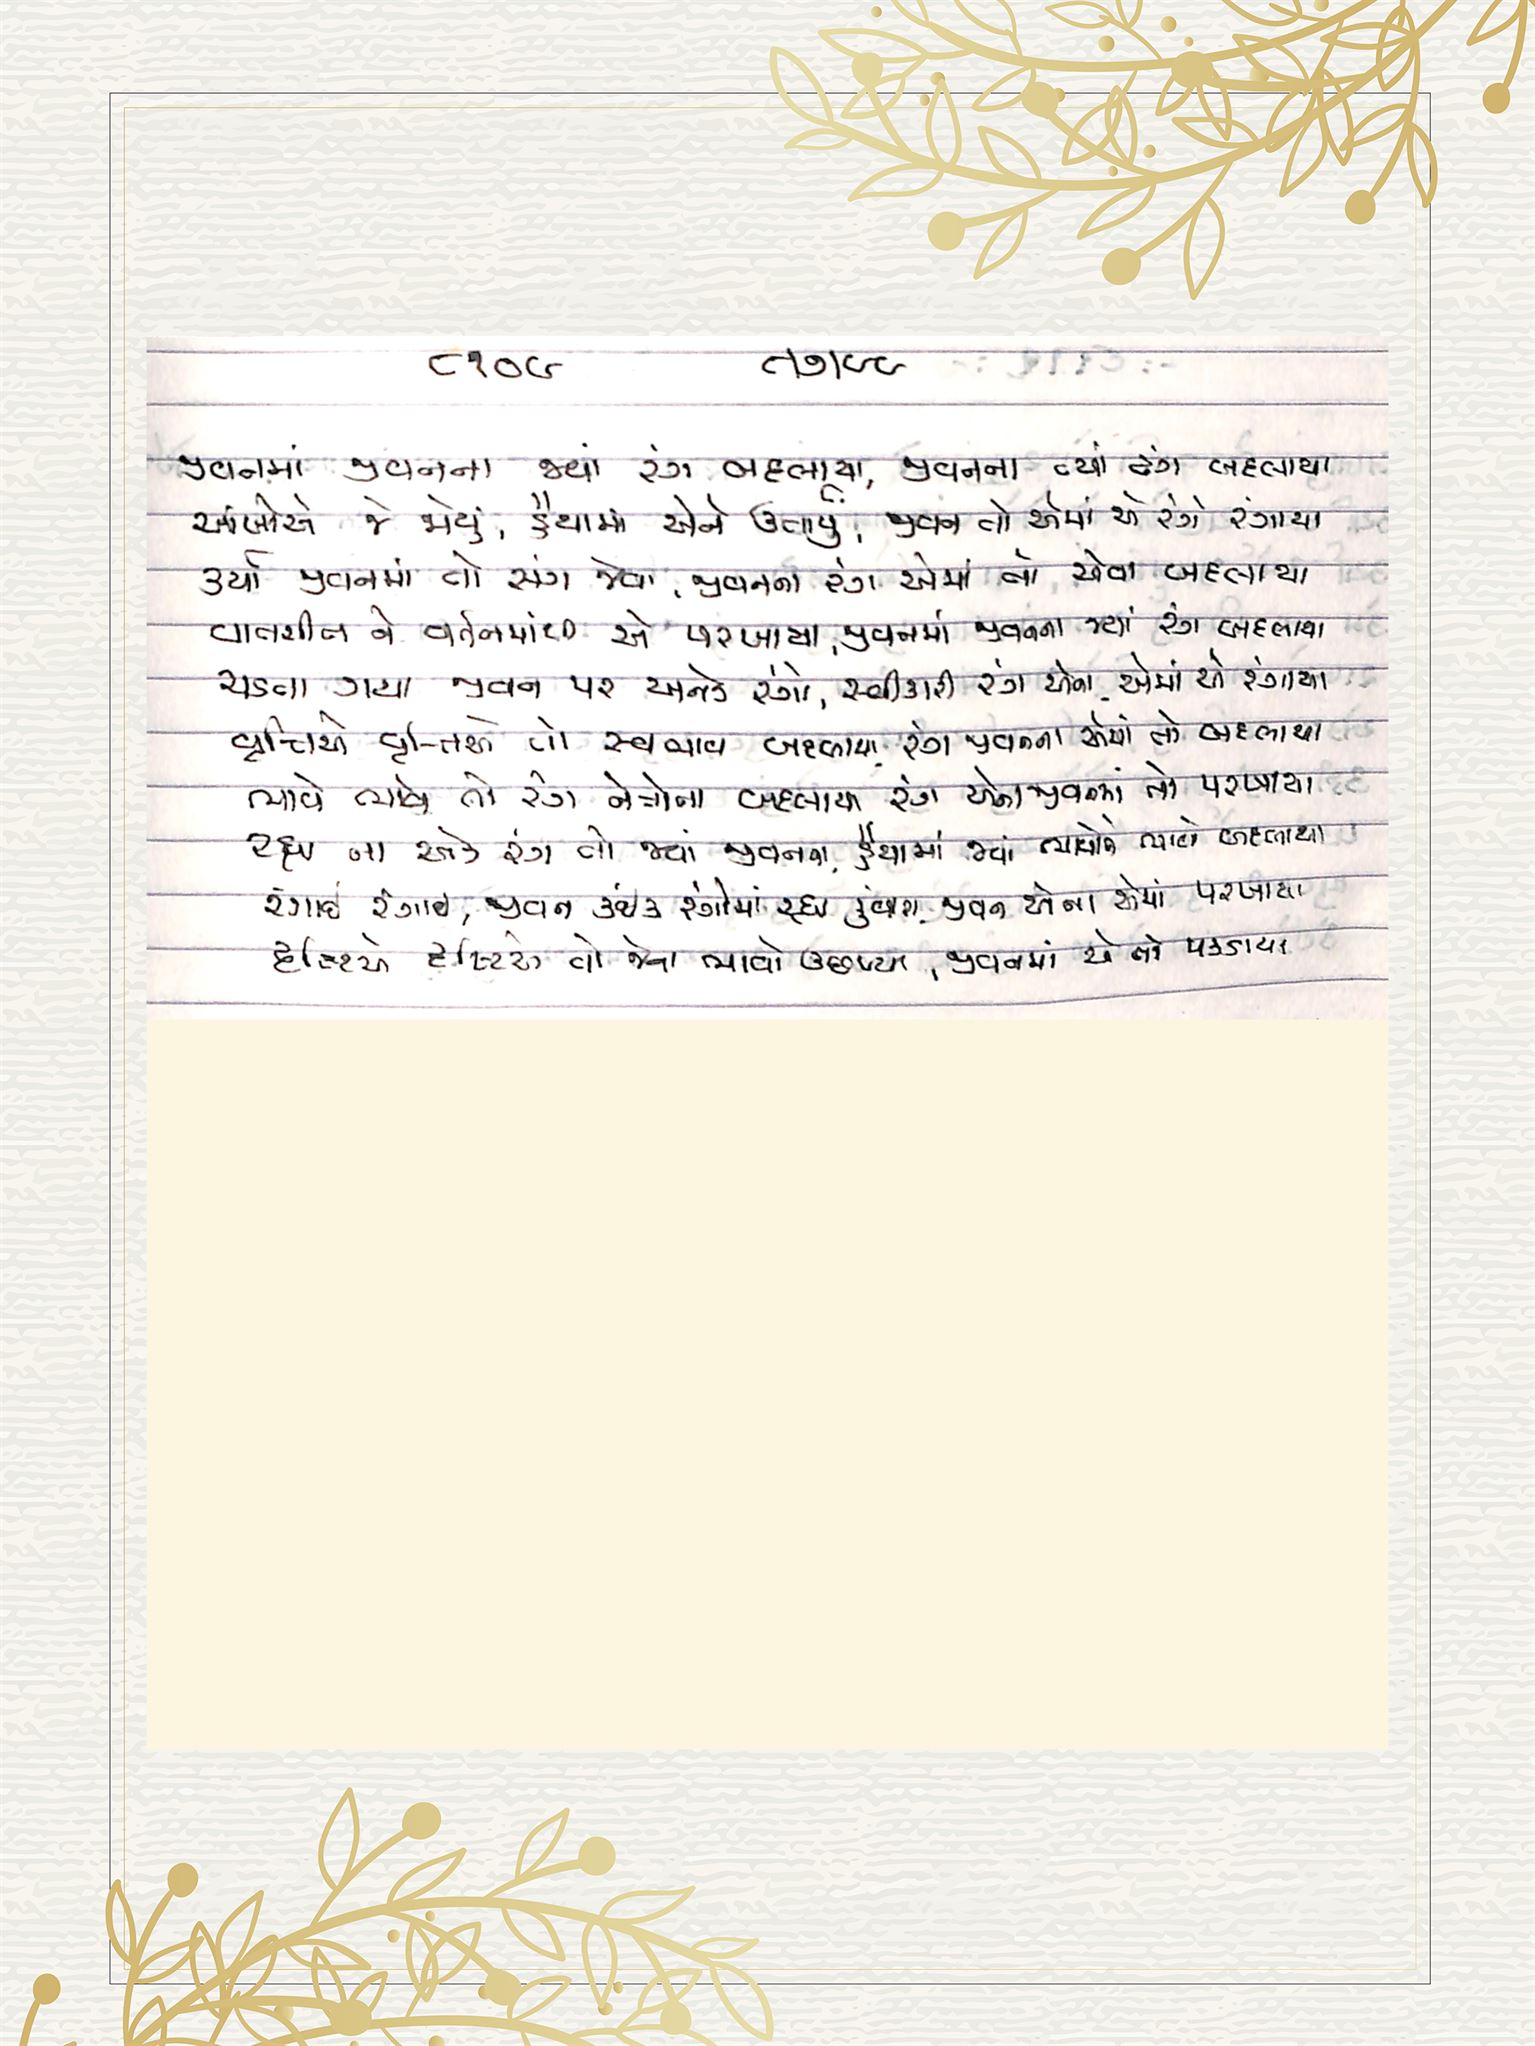 ૮૧૦૯ ૮/૭/૯૯
જીવનમાં જીવનના જ્યાં રંગ બદલાયા, જીવનના ત્યાં ઢંગ બદલાયા
આંખોએ જે જોયું, હૈયામાં એને ઉતાર્યું, જીવન તો એમાં એ રંગે રંગાયા
કર્યા જીવનમાં તો સંગ જેવા, જીવનના રંગ એમાં તો એવા બદલાયા
વાતચીત ને વર્તનમાંથી એ પરખાયા, જીવનમાં જીવનના જ્યાં રંગ બદલાયા
ચડતા ગયા જીવન પર અનેક રંગો, સ્વીકારી રંગ એના, એમાં એ રંગાયા
વૃત્તિએ વૃત્તિએ તો સ્વભાવ બદલાયા, રંગ જીવનના એમાં તો બદલાયા
ભાવે ભાવે તો રંગ નેત્રોના બદલાયા રંગ એના જીવનમાં તો પરખાયા
રહ્યા ના એક રંગ તો જ્યાં જીવનના, હૈયામાં જ્યાં ભાવોને ભાવો બદલાયા
રંગાઈ રંગાઈ, જીવન કંઈક રંગોમાં રહ્યા જીવન એના એમાં પરખાયા
દૃષ્ટિએ દૃષ્ટિએ તો જેના ભાવો ઉછળ્યા, જીવનમાં એ તો પકડાયા